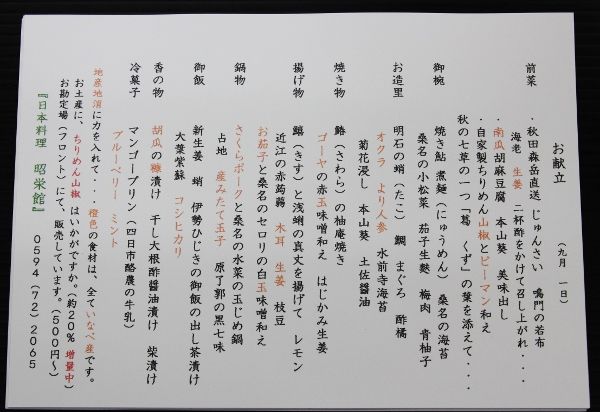 お献立
（九月　一日）
前菜　・秋田森岳直送　じゅんさい　鳴門の若布
海老　生姜　二杯酢をかけて召し上がれ・・・
・南瓜胡麻豆腐　本山葵　美味出し
・自家製ちりめん山椒とピーマン和え
秋の七草の一つ「葛　くず」の葉を添えて・・・
御椀　焼き鮎　煮麺（にゅうめん）　桑名の海苔
桑名の小松菜　茄子生麩　梅肉　青柚子
お造里　明石の蛸（たこ）　鯛　まぐろ　酢橘
オクラ　より人参　水前寺海苔
菊花浸し　本山葵　土佐醤油
焼き物　鰆（さわら）の柚庵焼き
ゴーヤの赤玉味噌和え　はじかみ生姜
揚げ物　鱚（きす）と浅蜊の真丈を揚げて　レモン
近江の赤蒟蒻　木耳　生姜　枝豆
お茄子と桑名のセロリの白玉味噌和え
鍋物　さくらポークと桑名の水菜の玉じめ鍋
占地　産みたて玉子　原了郭の黒七味
御飯　新生姜　蛸　伊勢ひじきの御飯の出し茶漬け
大葉紫蘇　コシヒカリ
香の物　胡瓜の糠漬け　干し大根酢醤油漬け　柴漬け
冷菓子　マンゴープリン（四日市酪農の牛乳）
ブルーベリー　ミント
地産地消に力を入れて・・・橙色の食材は、全ていなべ産です。
お土産に、ちりめん山椒はいかがですか。（約20％増量中）
お勘定場（フロント）にて、販売しています。（600円～）
『日本料理　昭栄館』　0594（72）2065